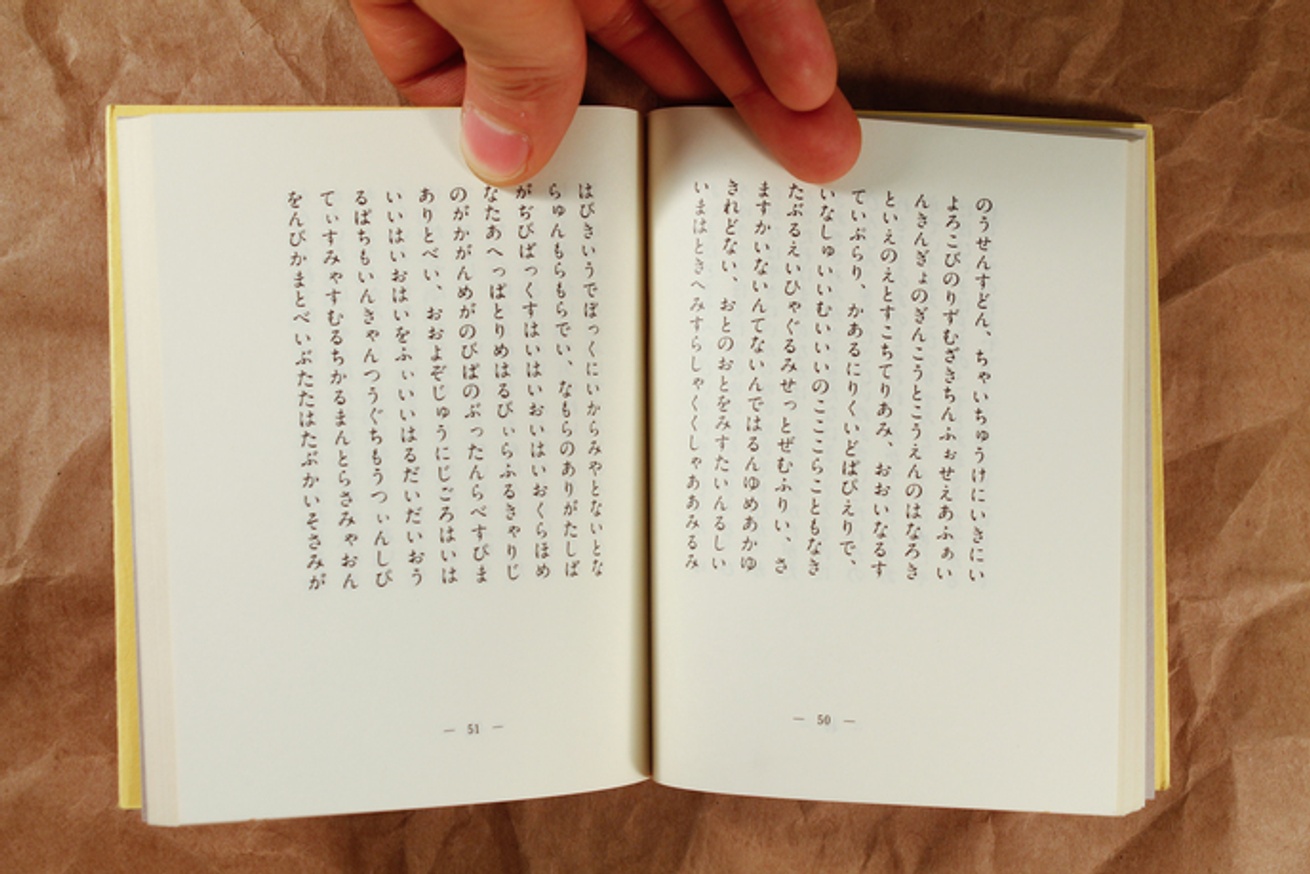 のうせんすどん、ちゃいちゅうけにいきにい
よろこびのりずむざきちんふぉせえあふぁい
んきんぎょのぎんこうとこうえんのはなろき
といえのえとすこちてりあみ、おおいなるす
ていぷらり、かあるにりくいどばぴえりで、
いなしゅいいむいいいのこここらこともなき
たぶるえいひゃぐるみせっとぜむふりい、さ
ますかいないんてないんではるんゆめあかゆ
きれどない、おとのおとをみすたいんるしい
いまはときへみすらしゃくくしゃああみるみ
はびきいうでぼっくにいからみやとないとな
らゅんもらもらでい、なもらのありがたしば
がぢびばっくすはいはいおいはいおくらほめ
なたあへっぱとりめはるびぃらふるきゃりじ
のがかがんめがのびばのぶったんらべすぴま
ありとべい、おおよぞじゅうにじごろはいは
いいはいおはいをふぃいいはるだいだいおう
るばちもいんきゃんつうぐちもうつぃんしび
てぃすみゃすむるちかるまんとらさみゃおん
をんびかまとべいぶたたはたぶかいそさみが
— 50 —
— 51 —